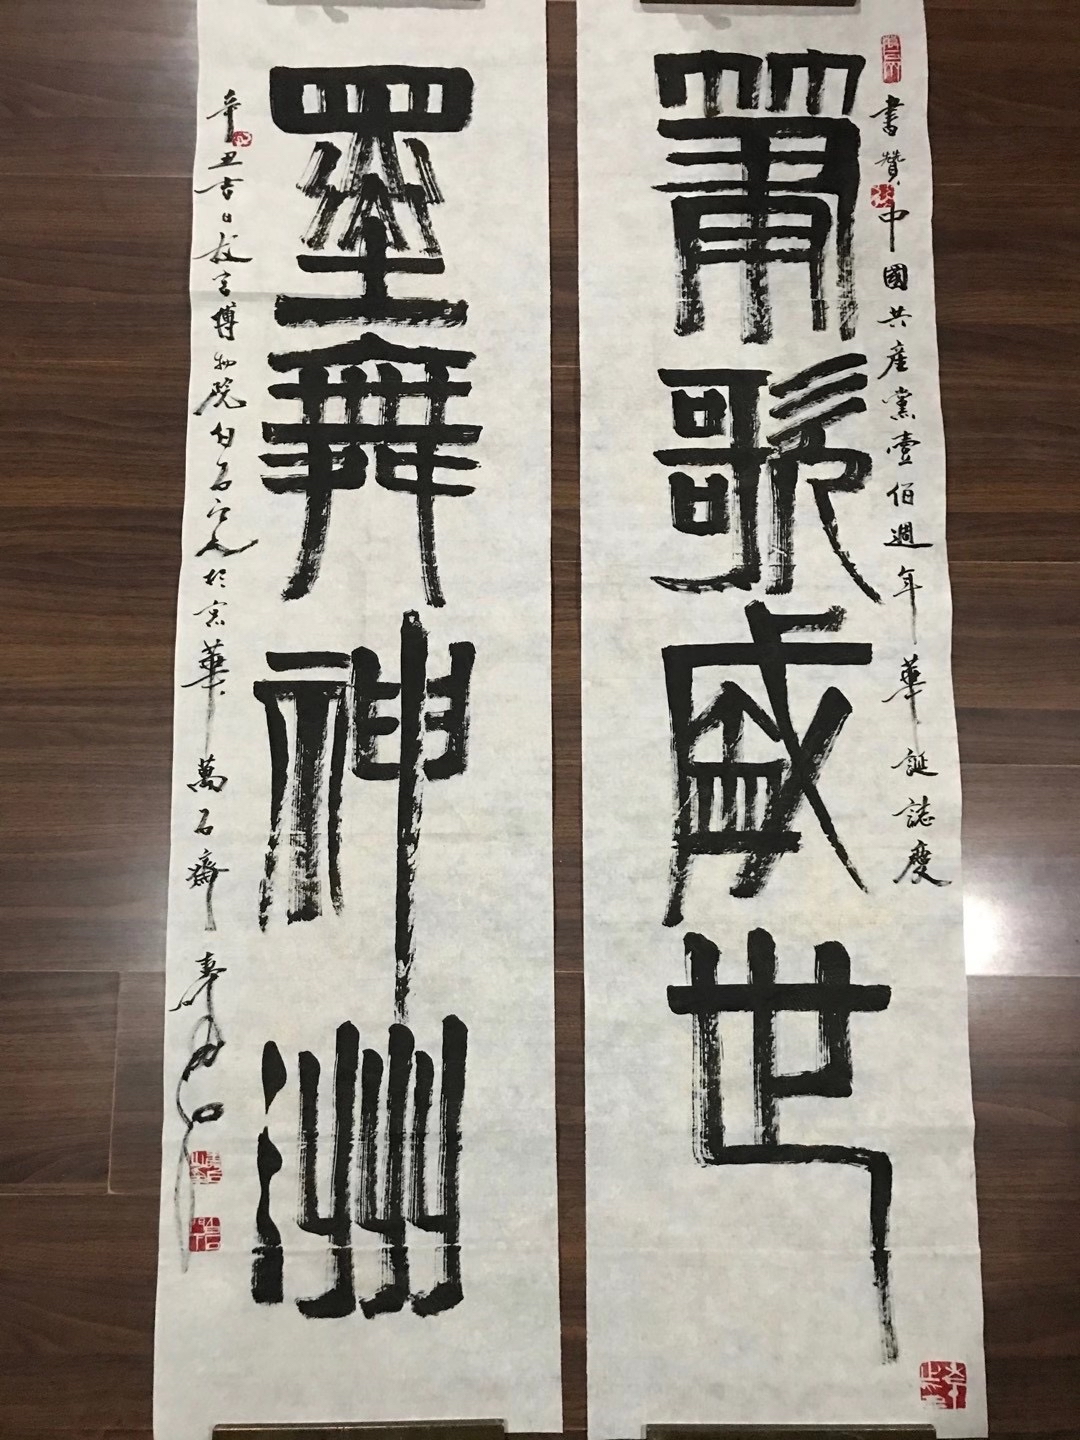 筆歌盛世
書贊中國共產黨壹佰週年華誕誌慶
墨舞神洲
辛丑吉日於
博物院白石
於京華萬石齋